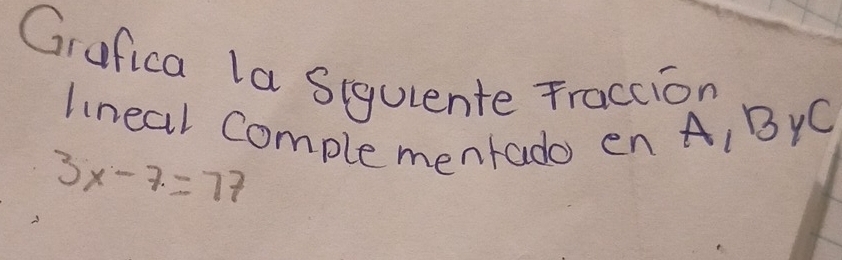 Grafica la siguiente Fracción
lineal complementado en A, B y C
3x - 7 = 77